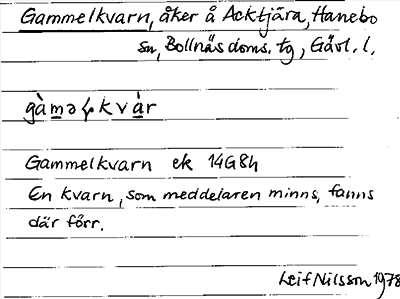 Gammelkvarn, åker å Acktjära, Hanebo
sn, Bollnäs doms. tg, Gävl. l.
Gammelkvarn ek 14G8h
En kvarn, som meddelaren minns, fanns
där förr.
Leif Nilsson 1978